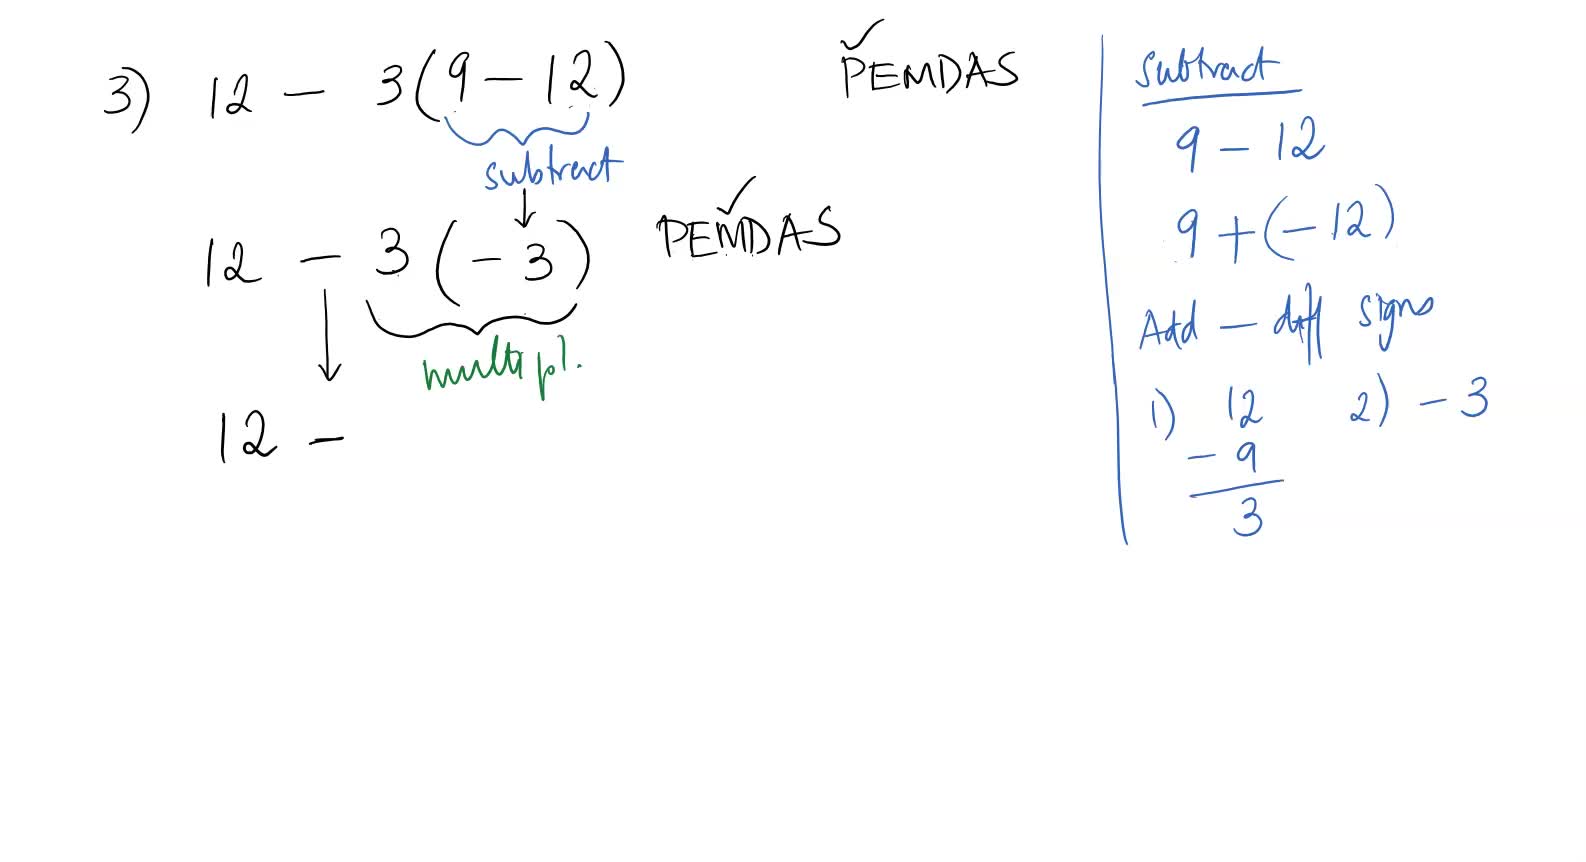 3) 12 - 3(9 - 12) PEMDAS
subtract
12 - 3(-3) PEMDAS
multipl.
12 -
Subtract
9 - 12
9 + (-12)
Add - diff signs
1) 12 2) -3
- 9
3